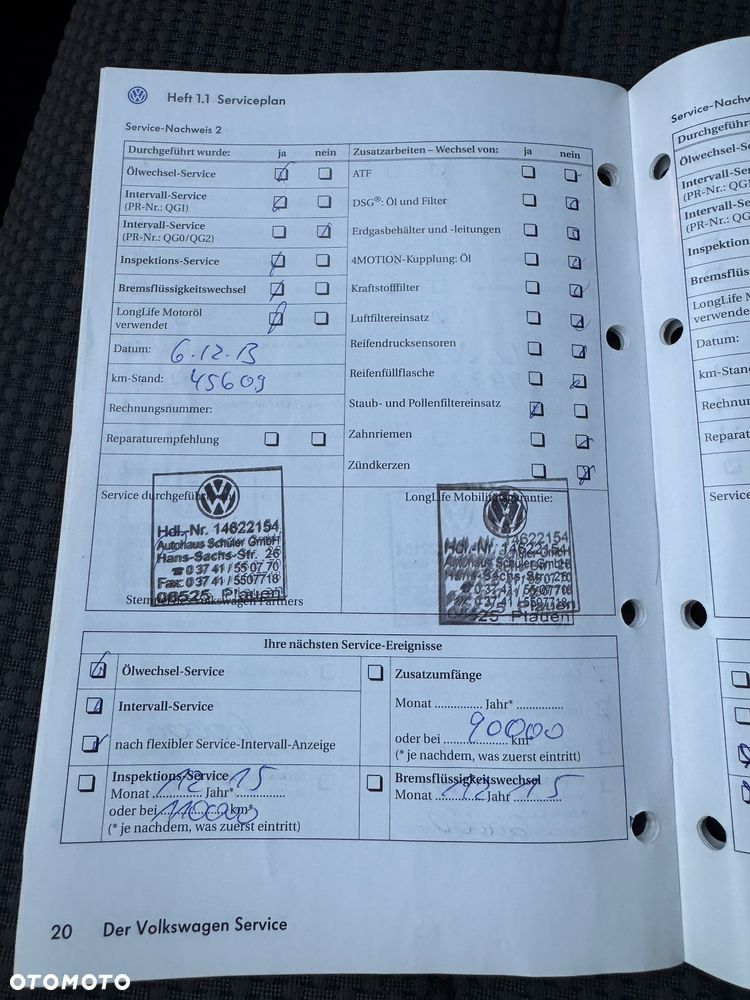 Heft 1.1 Serviceplan
Service-Nachweis 2
Durchgeführt wurde: ja nein
Ölwechsel-Service
Intervall-Service
(PR-Nr.: QGI)
Intervall-Service
(PR-Nr.: QG0/QG2)
Inspektions-Service
Bremsflüssigkeitswechsel
LongLife Motoröl
verwendet
Datum: 6.12.13
km-Stand: 45609
Rechnungsnummer:
Reparaturempfehlung
Zusatzarbeiten – Wechsel von: ja nein
ATF
DSG®: Öl und Filter
Erdgasbehälter und -leitungen
4MOTION-Kupplung: Öl
Kraftstofffilter
Luftfiltereinsatz
Reifendrucksensoren
Reifenfüllflasche
Staub- und Pollenfiltereinsatz
Zahnriemen
Zündkerzen
Service durchgeführt
Hdl.-Nr. 14622154
Autohaus Schüler GmbH
Hans-Sachs-Str. 26
☎ 0 37 41 / 55 07 70
Fax: 0 37 41 / 5507718
08525 Plauen
Stempel des Volkswagen Partners
LongLife Mobilitätsgarantie:
Hdl.-Nr. 14622154
Autohaus Schüler GmbH
Hans-Sachs-Str. 26
Plauen
Ihre nächsten Service-Ereignisse
Ölwechsel-Service
Intervall-Service
nach flexibler Service-Intervall-Anzeige
Inspektions-Service
Monat 12 Jahr* 15
oder bei 110000 km*
(* je nachdem, was zuerst eintritt)
Zusatzumfänge
Monat .............. Jahr* ..............
oder bei 90000 km*
(* je nachdem, was zuerst eintritt)
Bremsflüssigkeitswechsel
Monat 12 Jahr 15
20 Der Volkswagen Service
Service-Nachw
Durchgeführt
Ölwechsel-Ser
Intervall-Ser
(PR-Nr.: QGI
Intervall-Se
(PR-Nr.: QG
Inspektions
Bremsflüss
LongLife M
verwendet
Datum:
km-Stand
Rechnun
Reparat
Service
OTOMOTO